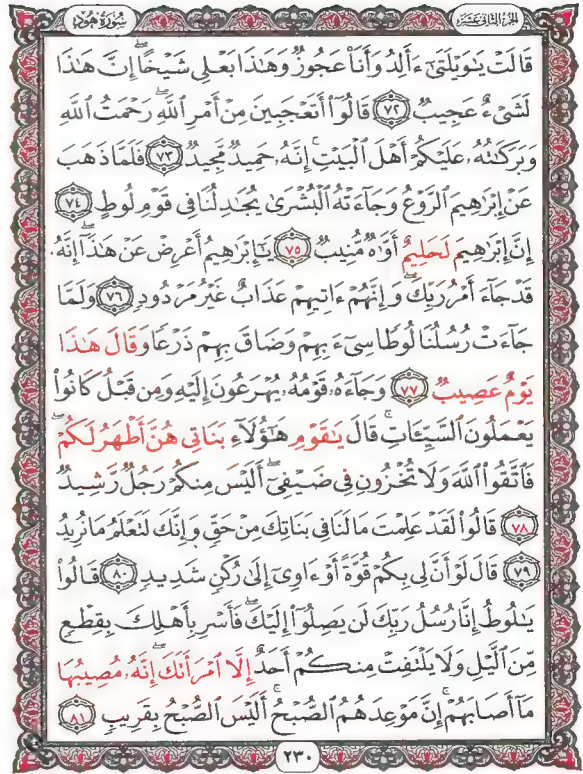 الجزء الثاني عشر
سُورَةُ هُودٍ
قَالَتْ يَٰوَيْلَتَىٰٓ ءَأَلِدُ وَأَنَا۠ عَجُوزٌ وَهَٰذَا بَعْلِى شَيْخًا ۖ إِنَّ هَٰذَا
لَشَىْءٌ عَجِيبٌ ٧٢ قَالُوٓا۟ أَتَعْجَبِينَ مِنْ أَمْرِ ٱللَّهِ ۖ رَحْمَتُ ٱللَّهِ
وَبَرَكَٰتُهُۥ عَلَيْكُمْ أَهْلَ ٱلْبَيْتِ ۚ إِنَّهُۥ حَمِيدٌ مَّجِيدٌ ٧٣ فَلَمَّا ذَهَبَ
عَنْ إِبْرَٰهِيمَ ٱلرَّوْعُ وَجَآءَتْهُ ٱلْبُشْرَىٰ يُجَٰدِلُنَا فِى قَوْمِ لُوطٍ ٧٤
إِنَّ إِبْرَٰهِيمَ لَحَلِيمٌ أَوَّٰهٌ مُّنِيبٌ ٧٥ يَٰٓإِبْرَٰهِيمُ أَعْرِضْ عَنْ هَٰذَآ ۖ إِنَّهُۥ
قَدْ جَآءَ أَمْرُ رَبِّكَ ۖ وَإِنَّهُمْ ءَاتِيهِمْ عَذَابٌ غَيْرُ مَرْدُودٍ ٧٦ وَلَمَّا
جَآءَتْ رُسُلُنَا لُوطًا سِىٓءَ بِهِمْ وَضَاقَ بِهِمْ ذَرْعًا وَقَالَ هَٰذَا
يَوْمٌ عَصِيبٌ ٧٧ وَجَآءَهُۥ قَوْمُهُۥ يُهْرَعُونَ إِلَيْهِ وَمِن قَبْلُ كَانُوا۟
يَعْمَلُونَ ٱلسَّيِّـَٔاتِ ۚ قَالَ يَٰقَوْمِ هَٰٓؤُلَآءِ بَنَاتِى هُنَّ أَطْهَرُ لَكُمْ ۖ
فَٱتَّقُوا۟ ٱللَّهَ وَلَا تُخْزُونِ فِى ضَيْفِىٓ ۖ أَلَيْسَ مِنكُمْ رَجُلٌ رَّشِيدٌ
٧٨ قَالُوا۟ لَقَدْ عَلِمْتَ مَا لَنَا فِى بَنَاتِكَ مِنْ حَقٍّ وَإِنَّكَ لَتَعْلَمُ مَا نُرِيدُ
٧٩ قَالَ لَوْ أَنَّ لِى بِكُمْ قُوَّةً أَوْ ءَاوِىٓ إِلَىٰ رُكْنٍ شَدِيدٍ ٨٠ قَالُوا۟
يَٰلُوطُ إِنَّا رُسُلُ رَبِّكَ لَن يَصِلُوٓا۟ إِلَيْكَ ۖ فَأَسْرِ بِأَهْلِكَ بِقِطْعٍ
مِّنَ ٱلَّيْلِ وَلَا يَلْتَفِتْ مِنكُمْ أَحَدٌ إِلَّا ٱمْرَأَتَكَ ۖ إِنَّهُۥ مُصِيبُهَا
مَآ أَصَابَهُمْ ۚ إِنَّ مَوْعِدَهُمُ ٱلصُّبْحُ ۚ أَلَيْسَ ٱلصُّبْحُ بِقَرِيبٍ ٨١
٢٣٠